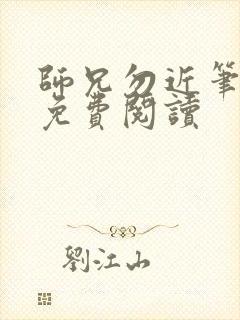 師兄勿近筆
免費閱讀
劉江山